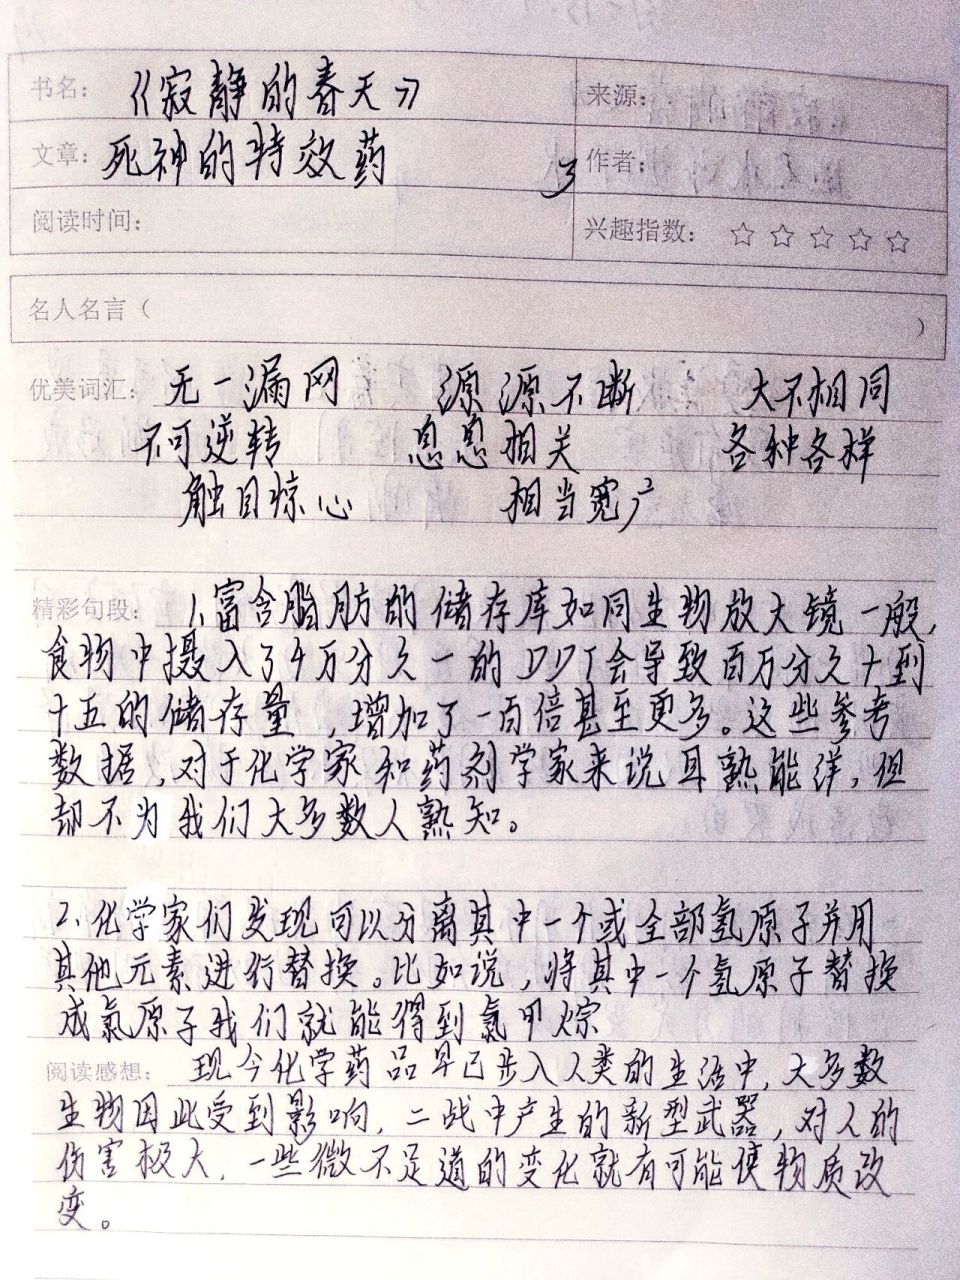 书名：《寂静的春天》 来源：
文章：死神的特效药 3 作者：
阅读时间： 兴趣指数：☆☆☆☆☆
名人名言（ ）
优美词汇：无一漏网 源源不断 大不相同
不可逆转 息息相关 各种各样
触目惊心 相当宽广
精彩句段：1.富含脂肪的储存库如同生物放大镜一般，
食物中摄入了千万分之一的DDT会导致百万分之十到
十五的储存量，增加了一百倍甚至更多。这些参考
数据，对于化学家和药剂学家来说耳熟能详，但
却不为我们大多数人熟知。
2.化学家们发现可以分离其中一个或全部氢原子并用
其他元素进行替换。比如说，将其中一个氢原子替换
成氯原子我们就能得到氯甲烷
阅读感想：现今化学药品早已步入人类的生活中，大多数
生物因此受到影响，二战中产生的新型武器，对人的
伤害极大，一些微不足道的变化就有可能使物质改
变。